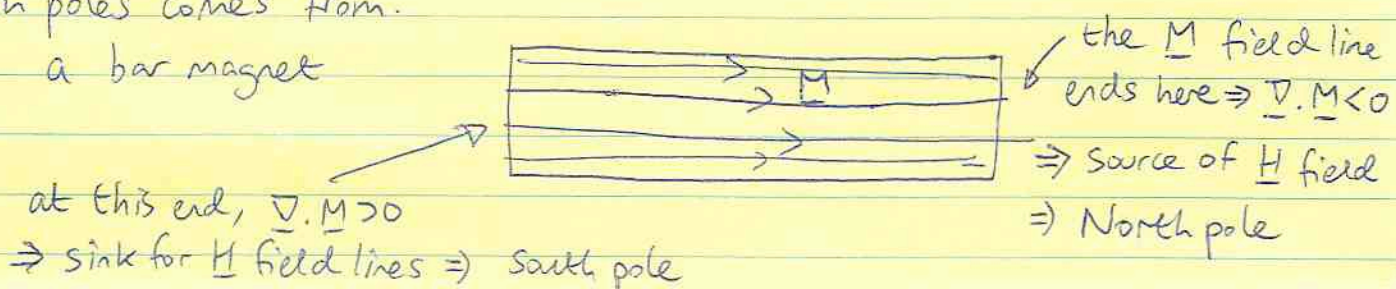 n poles comes from.
a bar magnet
M
the M field line
ends here ⇒ ∇.M<0
⇒ Source of H field
⇒ North pole
at this end, ∇.M>0
⇒ sink for H field lines ⇒ South pole